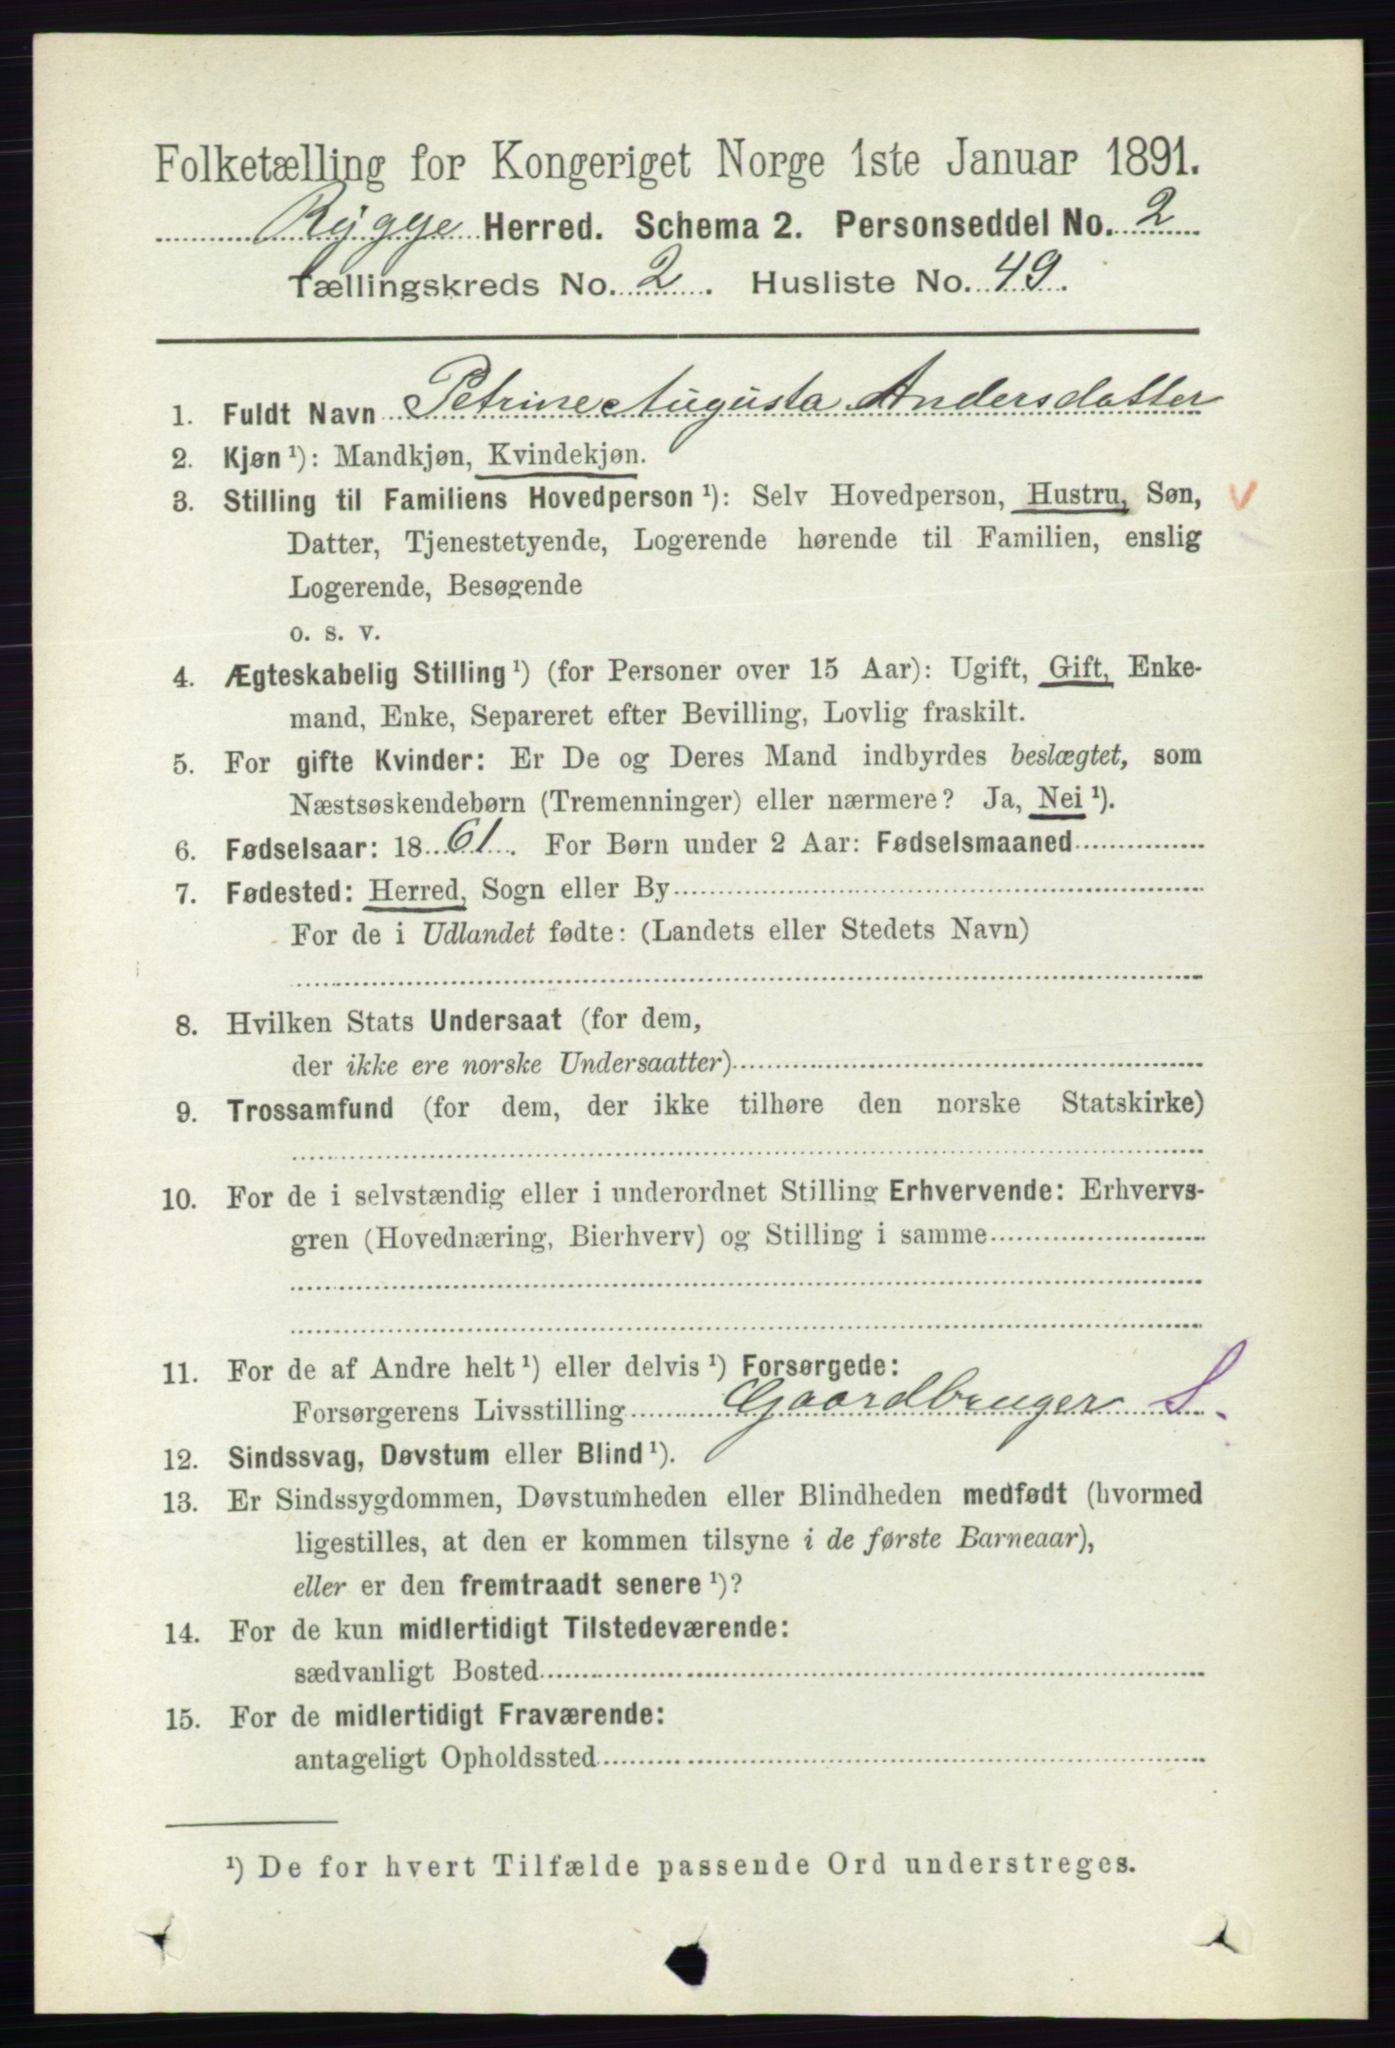 Folketælling for Kongeriget Norge 1ste Januar 1891.
Rygge Herred. Schema 2. Personseddel No. 2
Tællingskreds No. 2. Husliste No. 49.
1. Fuldt Navn Petrine Augusta Andersdatter
2. Kjøn ¹): Mandkjøn, Kvindekjøn.
3. Stilling til Familiens Hovedperson ¹): Selv Hovedperson, Hustru, Søn,
Datter, Tjenestetyende, Logerende hørende til Familien, enslig
Logerende, Besøgende
o. s. v.
4. Ægteskabelig Stilling ¹) (for Personer over 15 Aar): Ugift, Gift, Enke-
mand, Enke, Separeret efter Bevilling, Lovlig fraskilt.
5. For gifte Kvinder: Er De og Deres Mand indbyrdes beslægtet, som
Næstsøskendebørn (Tremenninger) eller nærmere? Ja, Nei ¹).
6. Fødselsaar: 1861. For Børn under 2 Aar: Fødselsmaaned
7. Fødested: Herred, Sogn eller By
For de i Udlandet fødte: (Landets eller Stedets Navn)
8. Hvilken Stats Undersaat (for dem,
der ikke ere norske Undersaatter)
9. Trossamfund (for dem, der ikke tilhøre den norske Statskirke)
10. For de i selvstændig eller i underordnet Stilling Erhvervende: Erhvervs-
gren (Hovednæring, Bierhverv) og Stilling i samme
11. For de af Andre helt ¹) eller delvis ¹) Forsørgede:
Forsørgerens Livsstilling Gaardbruger S.
12. Sindssvag, Døvstum eller Blind ¹).
13. Er Sindssygdommen, Døvstumheden eller Blindheden medfødt (hvormed
ligestilles, at den er kommen tilsyne i de første Barneaar),
eller er den fremtraadt senere ¹)?
14. For de kun midlertidigt Tilstedeværende:
sædvanligt Bosted
15. For de midlertidigt Fraværende:
antageligt Opholdssted
¹) De for hvert Tilfælde passende Ord understreges.